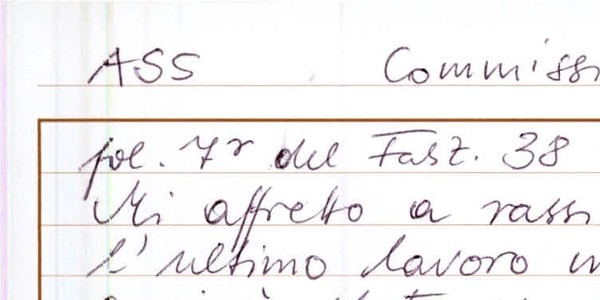 ASS Commissi
fol. 7r del Fasz. 38
Mi affretto a rassi
l'ultimo lavoro